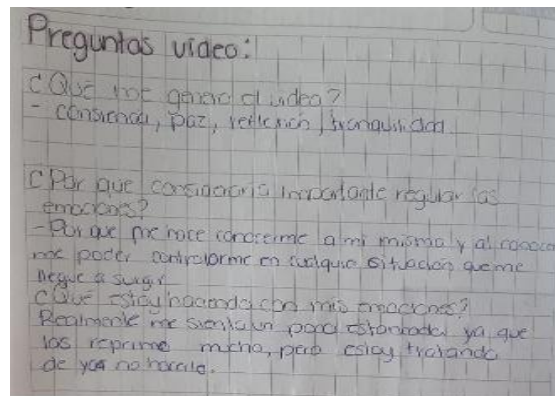 Preguntas video:
¿Que me generó el video?
- consiencia, paz, reflexion, tranquilidad
¿Por que consideraria importante regular las
emociones?
- Por que me hace conocerme a mi misma y al conocer
me poder controlarme en cualquier situacion que me
llegue a surgir
¿Qué estoy haciendo con mis emociones?
Realmente me siento un poco estancada ya que
los reprimo mucho, pero estoy tratando
de ya no hacerlo.